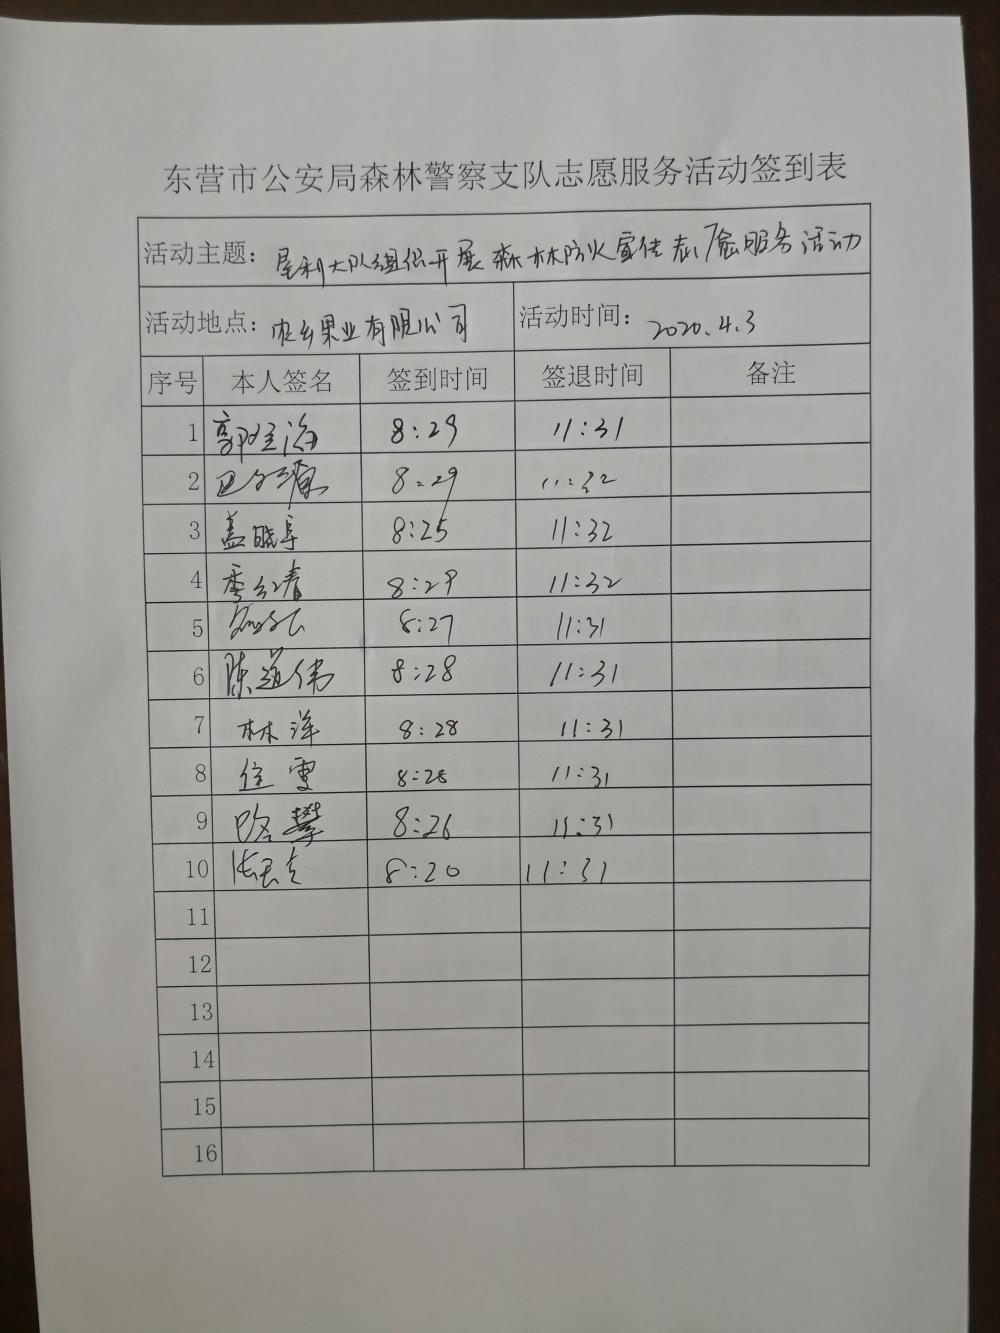 东营市公安局森林警察支队志愿服务活动签到表
活动主题: 垦利大队组织开展森林防火宣传志愿服务活动
活动地点: 果业有限公司 活动时间: 2020.4.3
序号 本人签名 签到时间 签退时间 备注
1 8:29 11:31
2 8:29 11:32
3 盖晓阜 8:25 11:32
4 8:29 11:32
5 8:27 11:31
6 陈道伟 8:28 11:31
7 林洋 8:28 11:31
8 8:28 11:31
9 路攀 8:26 11:31
10 8:20 11:31
11
12
13
14
15
16